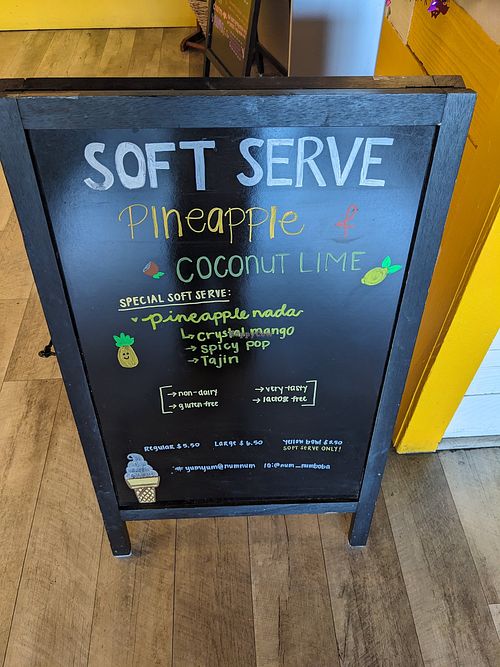 SOFT SERVE
Pineapple &
COCONUT LIME
SPECIAL SOFT SERVE:
pineapple nada
↳ crystal mango
→ spicy pop
→ Tajin
→ non-dairy → very-tasty
→ gluten free → lactose free
Regular $5.50 Large $6.50 Yellow bowl $8.50
SOFT SERVE ONLY!
yumyum@numnum IG:@num_numboba